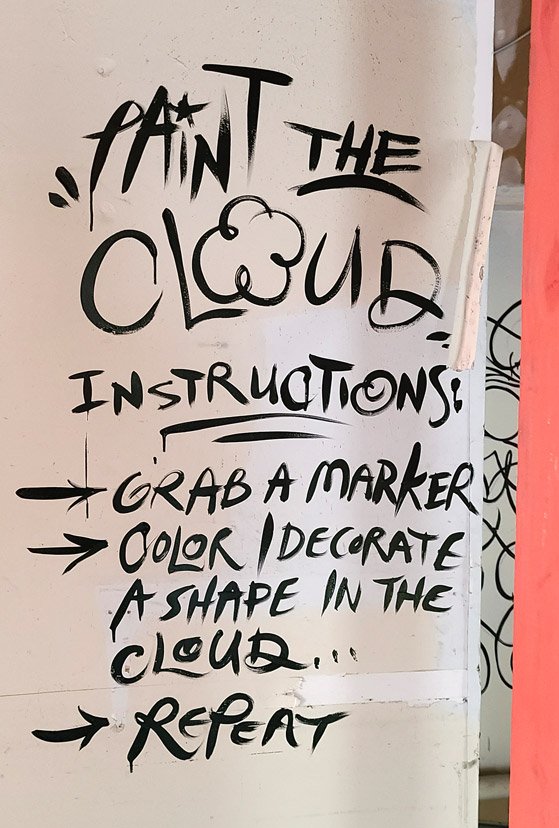 PAINT THE
CLOUD
INSTRUCTIONS:
→ GRAB A MARKER
→ COLOR / DECORATE
A SHAPE IN THE
CLOUD...
→ REPEAT